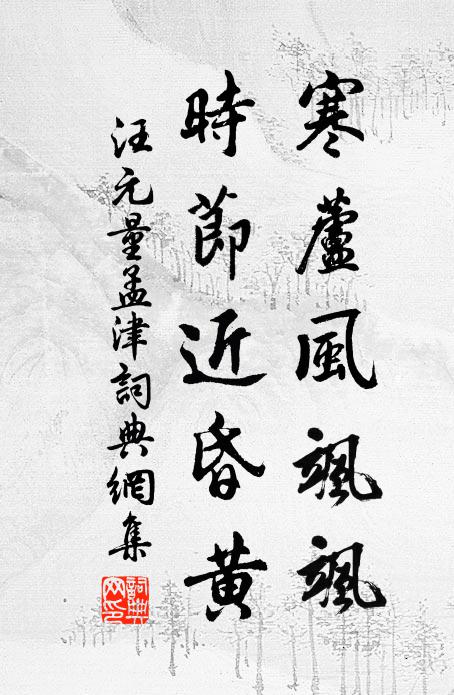 寒蘆風颯颯
時節近昏黃
汪元量孟津詞典網集
詞典網印